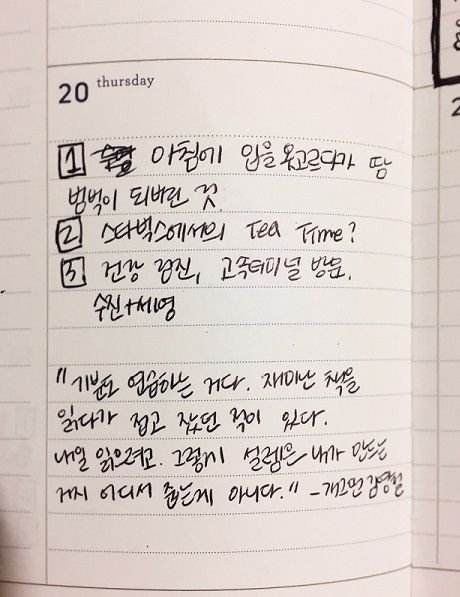 20 thursday
1 아침에 입을 옷고르다가 땀
범벅이 되버린 것.
2 스타벅스에서의 Tea Time?
3 건강 검진, 고속터미널 방문.
수진+세영
"기분도 연습하는 거다. 재미난 책을
읽다가 접고 잤던 적이 있다.
내일 읽으려고. 그렇게 설렘은 내가 만드는
거지 어디서 줍는게 아니다." -개그맨 김영철
2